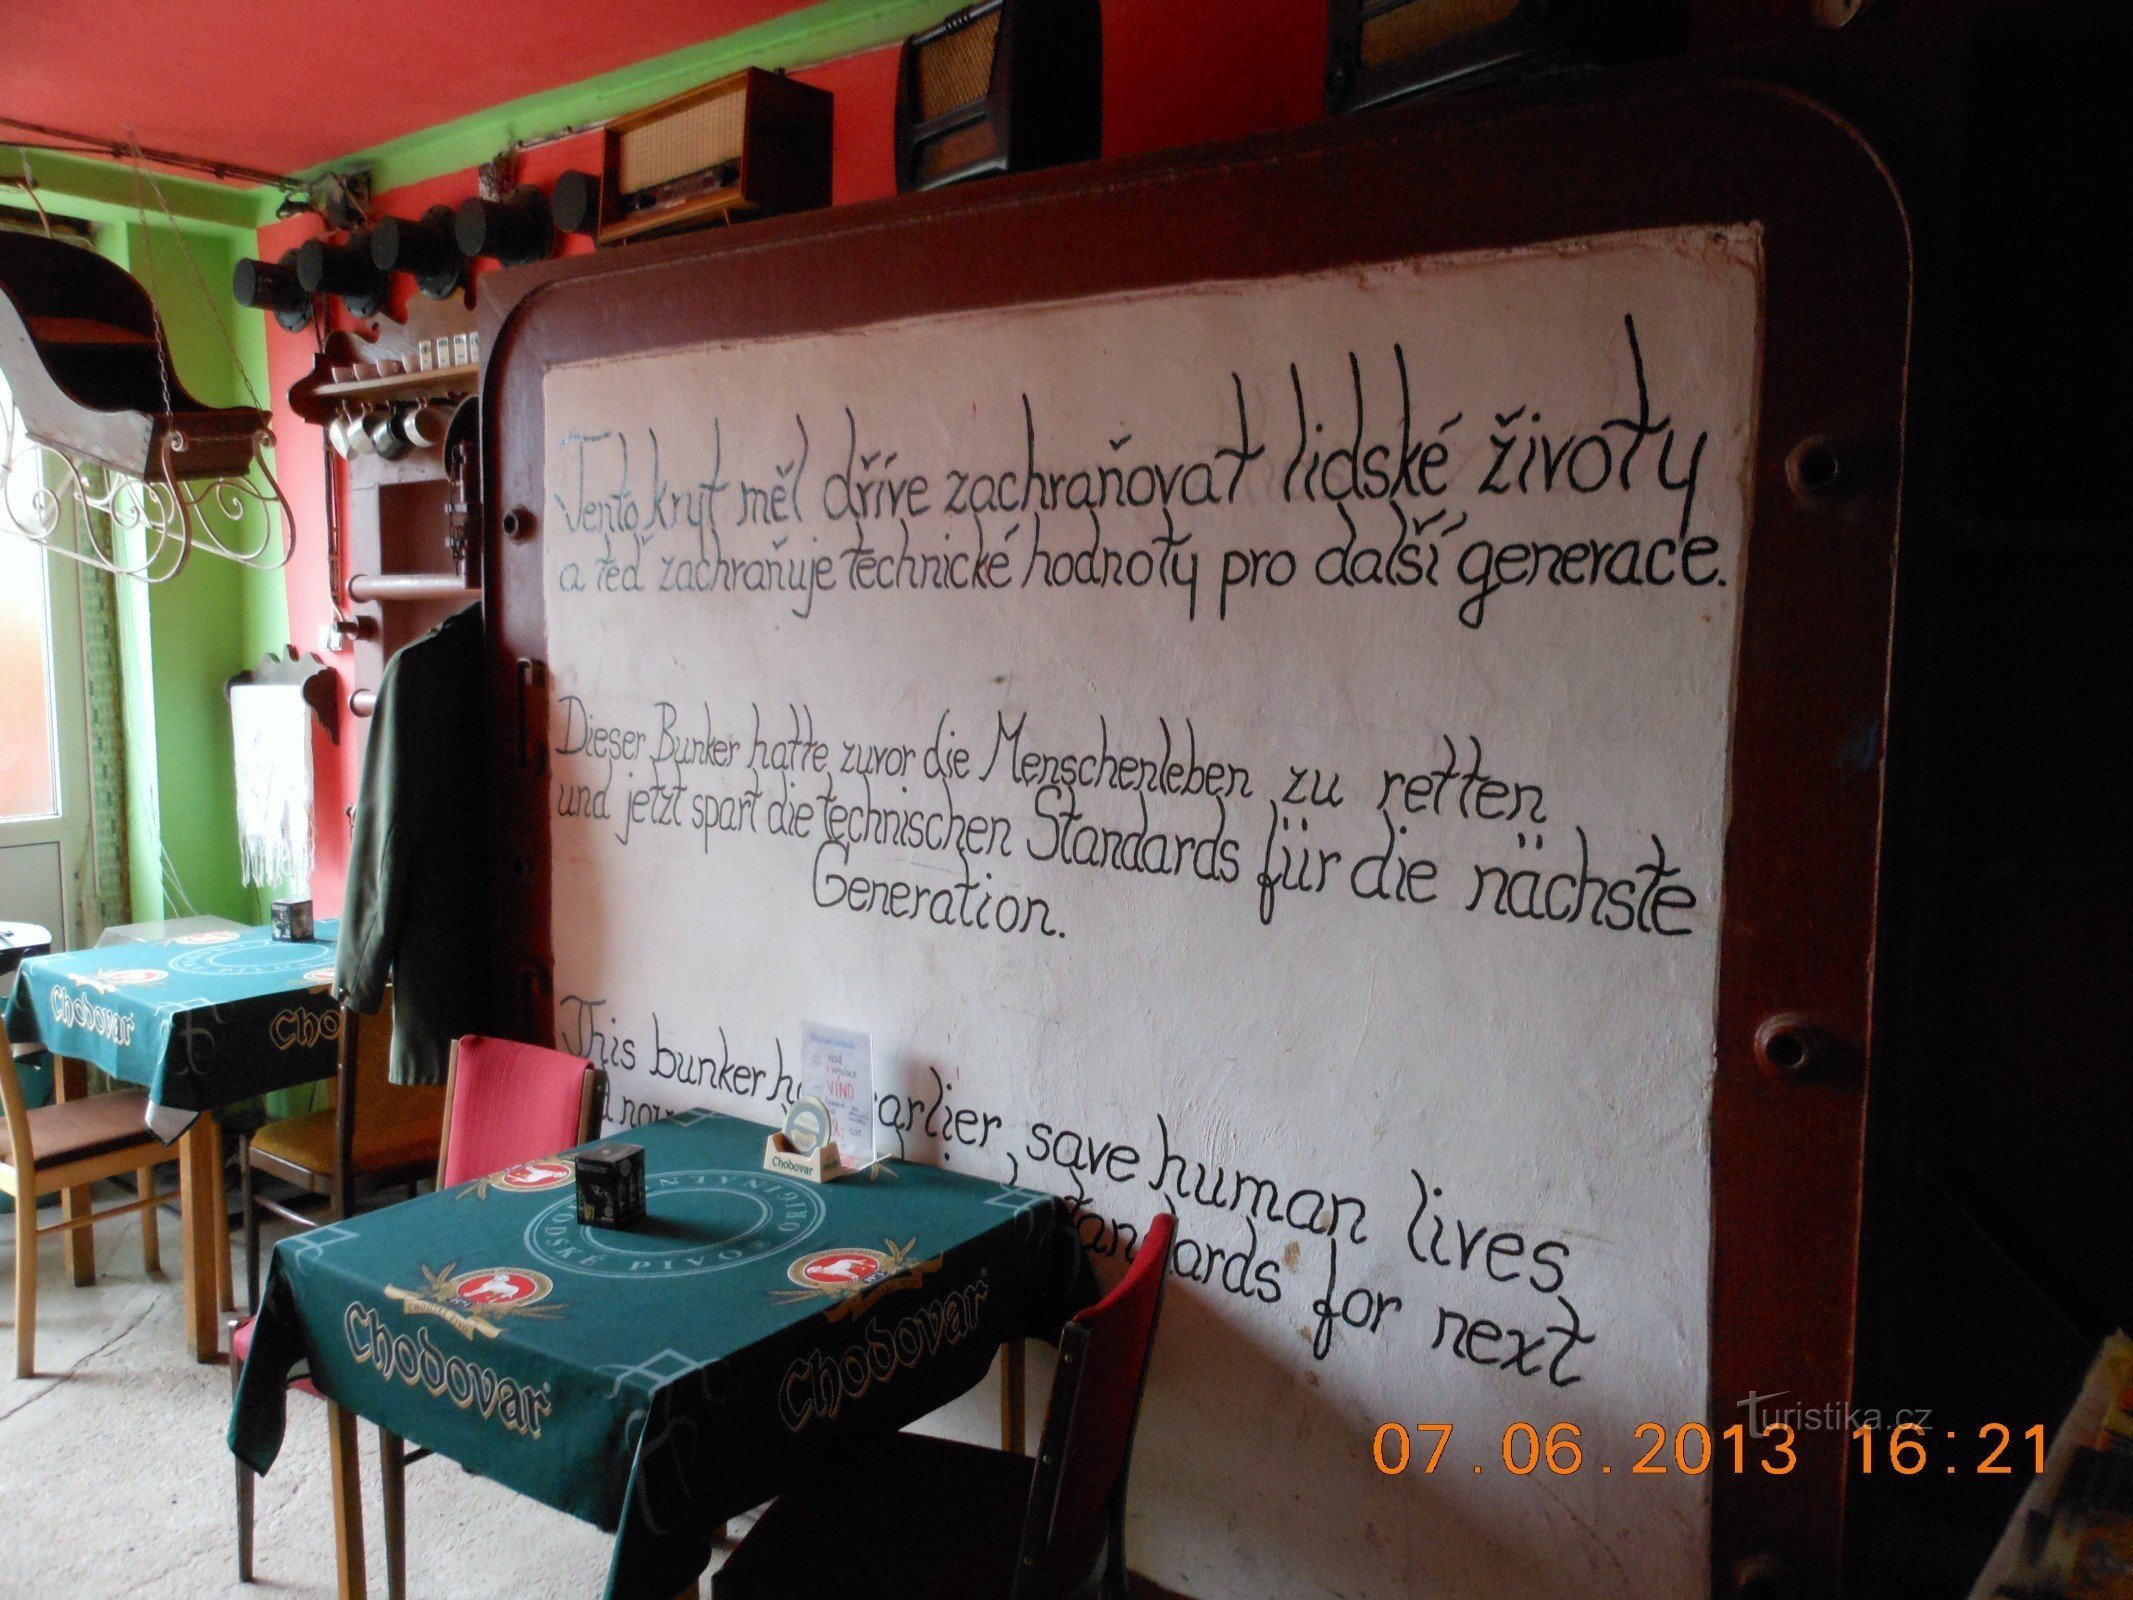 Tento kryt měl dříve zachraňovat lidské životy
a teď zachraňuje technické hodnoty pro další generace.
Dieser Bunker hatte zuvor die Menschenleben zu retten
und jetzt spart die technischen Standards für die nächste
Generation.
This bunker earlier save human lives
standards for next
VÍNO
Chodovar
Chodovar
Cho
Chodovar
Chodovar
CHODSKÉ PIVO ORIGINÁLNÍ
Turistika.cz
07.06.2013 16:21